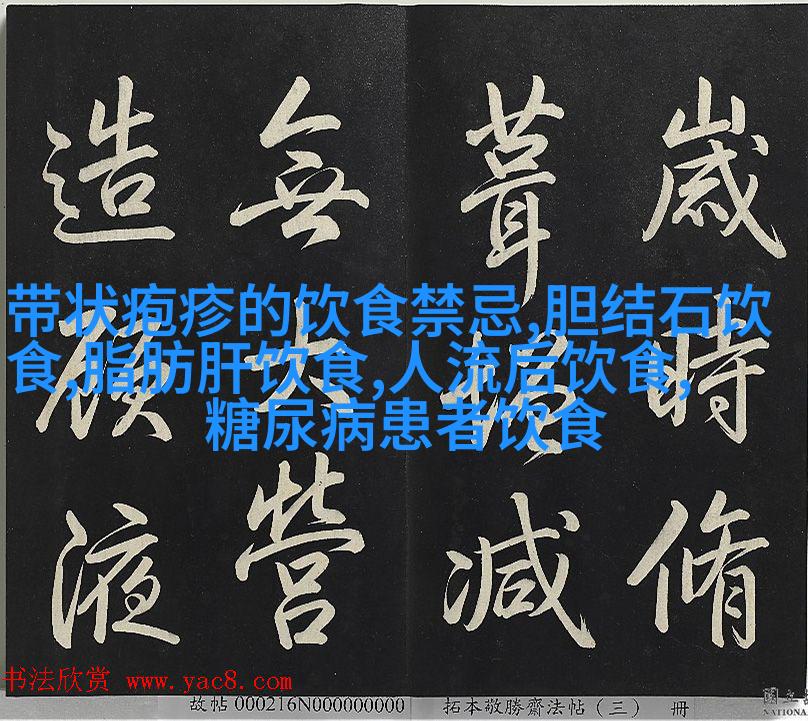 歲時脩
葺增減
無大營
造頋液
带状疱疹的饮食禁忌,胆结石饮
食,脂肪肝饮食,人流后饮食,
糖尿病患者饮食
书法欣赏 www.yac8.com
故帖 000216N000000000 拓本敬勝齋法帖（三） 冊
國立
NATIONA